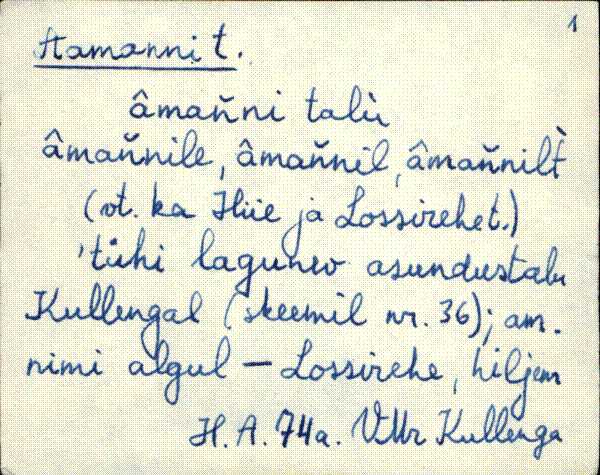 1
Aamanni t.
âmaňni talù
âmaňnile, âmaňnil, âmaňnilt̀
(vt. ka Hiie ja Lossirehet.)
'tühi lagunev asundustalu
Kullengal (skeemil nr. 36); am.
nimi algul – Lossirehe, hiljem
H. A. 74a. VMr Kullenga